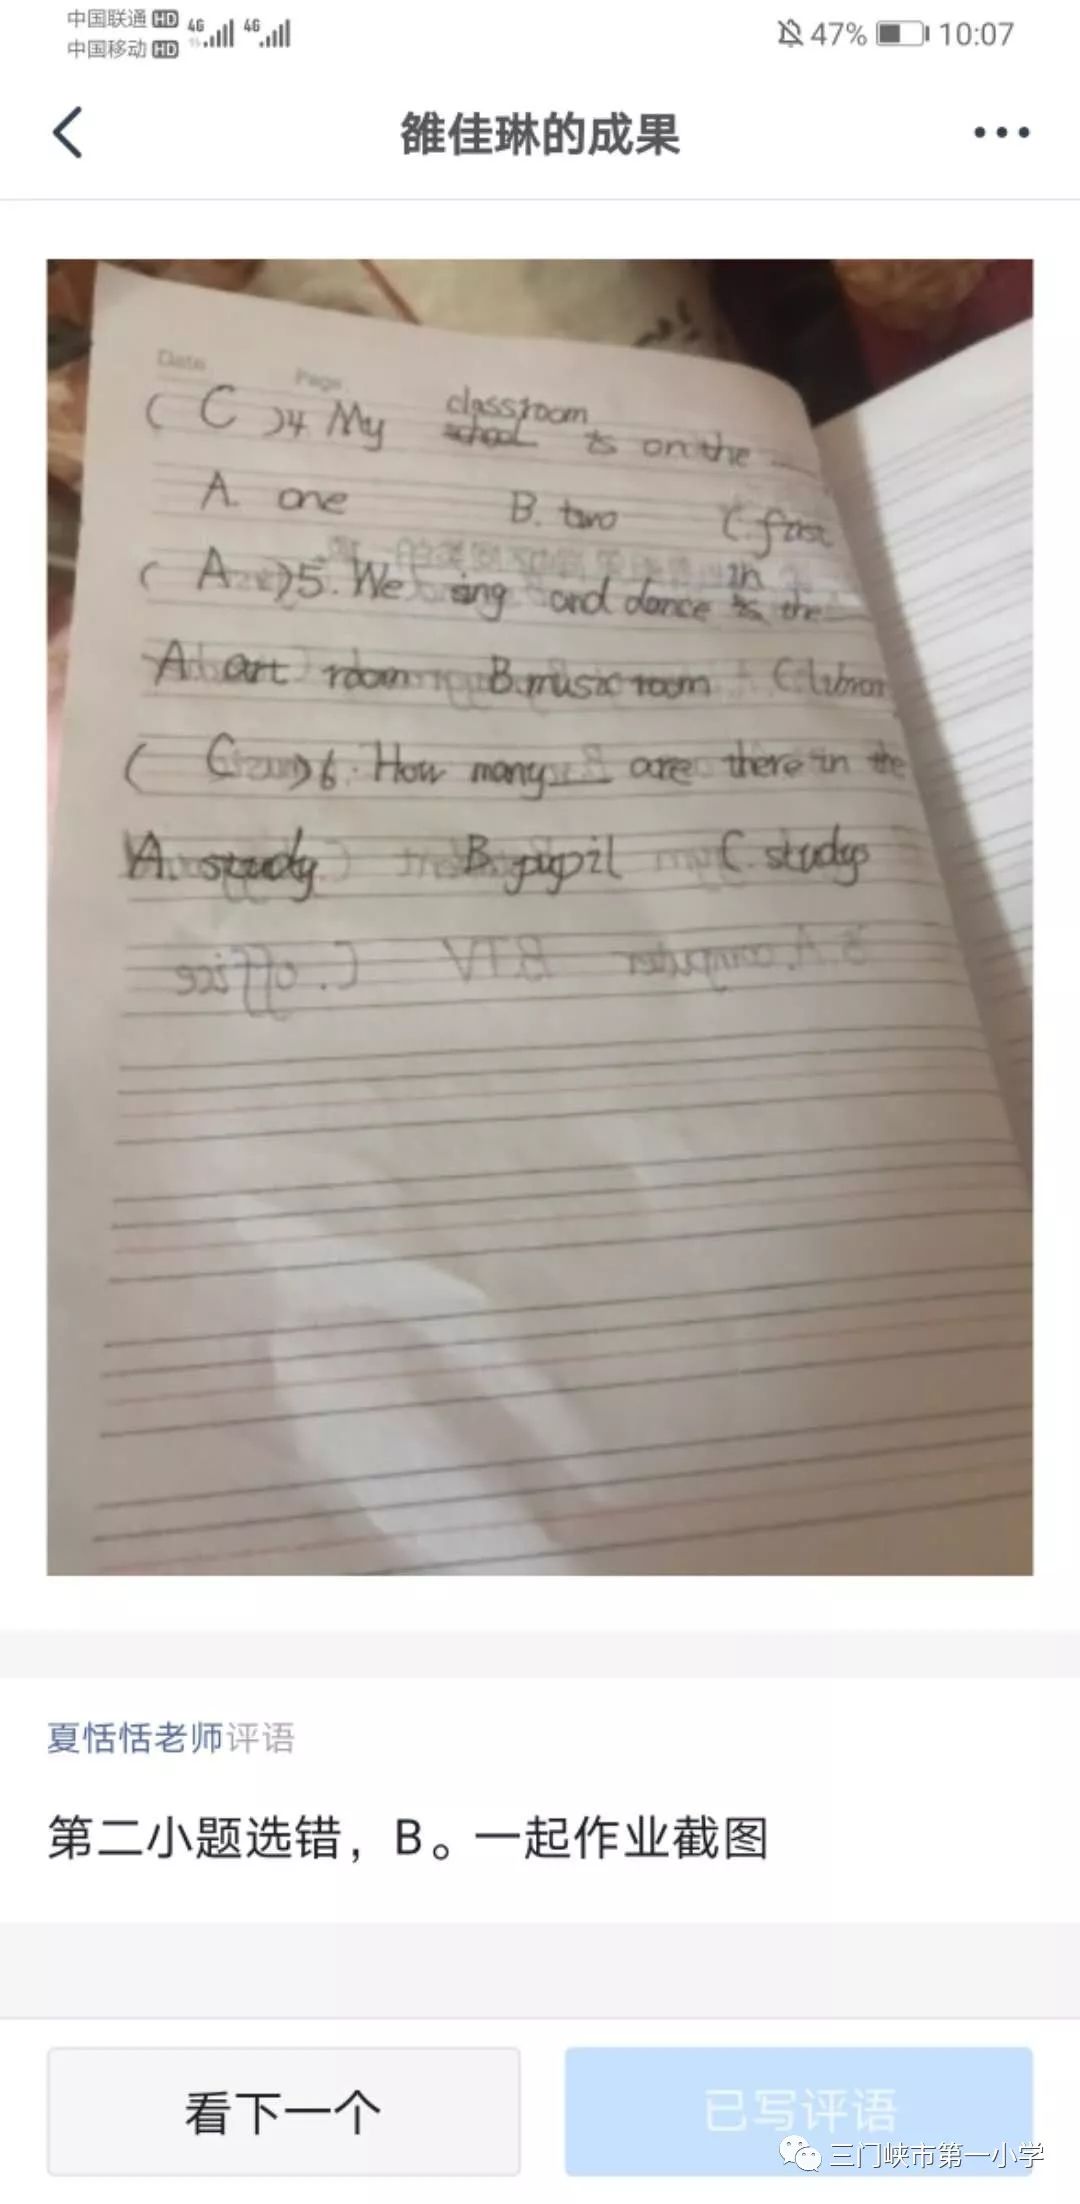 中国联通 HD 4G 4G 47% 10:07
中国移动 HD
雒佳琳的成果
Date Page
classroom
( C )4 My school is on the
A. one B. two C. first
in
( A )5. We sing and dance is the
A art room B. music room C.
( C )6. How many are there in the
A. study B. pupil C. studys
B. A. computer B TV C. office
夏恬恬老师评语
第二小题选错，B。一起作业截图
看下一个
已写评语
三门峡市第一小学